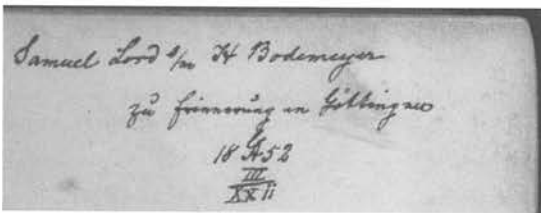 Samuel Lord s/m H Bodemeyer
zu Erinnerung an Göttingen
18 52
III
XXII